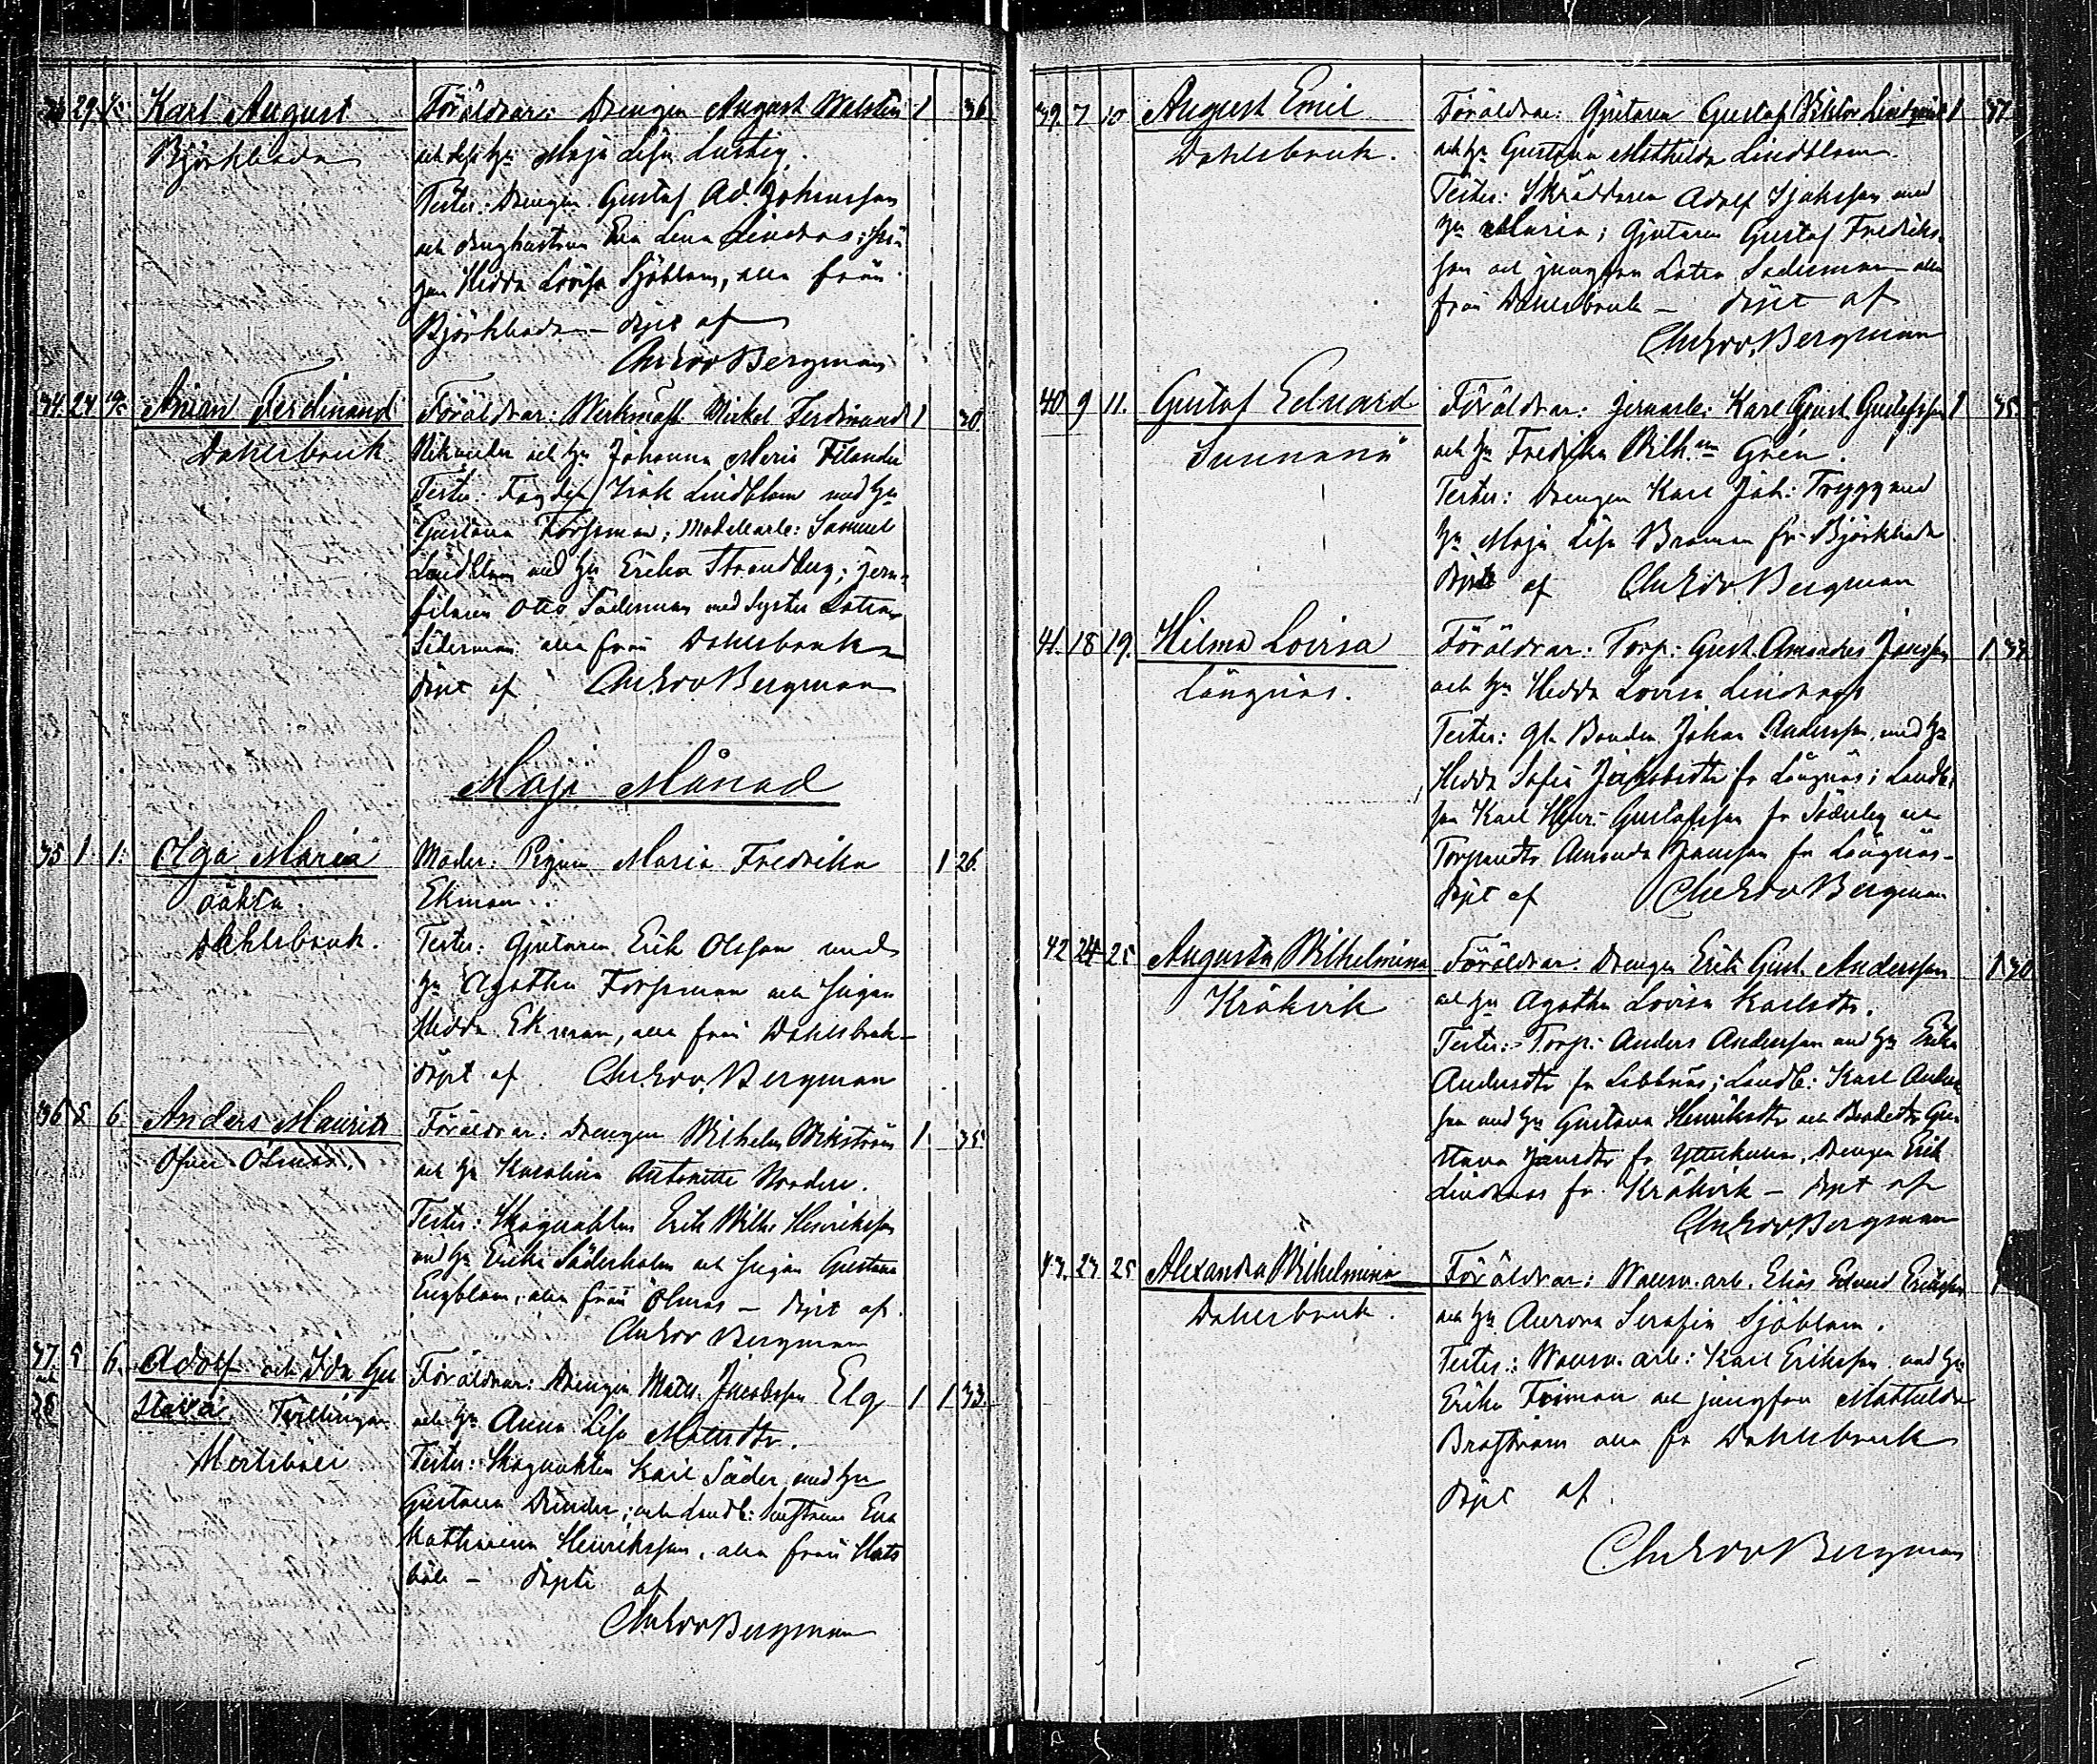 29 Karl August Föräldrar: Drengen August Walstén 1 36
Björkboda och dess h:u Maja Lisa Lustig.
Testes: Drengen Gustaf Ad. Johansson
och drenghustrun Eva Lena Lindroos;
Hedda Lovisa Sjöblom, alla från
Björkboda – döpt af
Chr Edv Bergman
34. 24 Anian Ferdinand Föräldrar: Werkmäst. Mickel Ferdinand 1 30
Dahlsbruk Nikander och h:u Johanna Maria Filander
Testes: Isak Lindblom med h:u
Gustava Forsman; Modellarb: Samuel
Lindblom med h:u Erika Strandberg; jern-
filaren Otto Söderman med Syster
Söderman alla från Dahlsbruk
döpt af Chr Edv Bergman
Maji Månad
35 1 1. Olga Maria Moder: Pigan Maria Fredrika 1 26.
oäkta. Ekman.
Dahlsbruk. Testes: Gjutaren Erik Olsson med
h:u Agatha Forsman och pigan
Hedda Ekman, alla från Dahlsbruk –
döpt af Chr. Edv. Bergman
36 5 6. Anders Mauritz Föräldrar: Drengen Wilhelm Wikström 1. 35
Öfver Ölmos. och h:u Karolina Antonette
Testes: Skogvakten Erik Wilh. Henriksson
med h:u Erika Söderholm och pigan Gustava
Engblom, alla från Ölmos – döpt af
Chr Edv Bergman
37 och 38 5 6. Adolf och Ida Gu Föräldrar: Drengen Mats Jacobsson Elg 1 1 33.
stava Tvillingar och h:u Anna Lisa Matsdtr.
Testes: Skogvakten Karl Söder med h:u
Gustava; och Landb: hustrun Eva
Katharina Henriksson, alla från
böle – döpte af
Chr Edv Bergman
39 7 10 August Emil Föräldrar: Gjutaren Gustaf Viktor Lindqvist 1
Dahlsbruk. och h:u Gustava Mathilda Lindblom.
Testes: Skräddaren Adolf Isaksson med
h:u Maria; Gjutaren Gustaf Fredriks-
son och jungfrun Söderman alla
från Dahlsbruk – döpt af
Chr Edv. Bergman
40 9 11. Gustaf Eduard Föräldrar: Jernarb: Karl Gust. Gustafsson 1 35
Sunnanå och h:u Fredrika Wilh.na Grén.
Testes: Drengen Karl Joh: Trygg med
h:u Maja Lisa Broman fr. Björkboda
döpt af Chr Edv. Bergman
41. 18 19. Hilma Lovisa Föräldrar: Torp: Gust. Amandus Jansson 1
Långnäs. och h:u Hedda Lovisa
Testes: gl. Bonden Johan Andersson, med h:u
Hedda Sofia Jakobsdtr fr Långnäs; Landb:
son Karl Henr: Gustafsson fr och
Torpardtr Amanda Jansson fr Långnäs –
döpt af Chr Edv Bergman
42 24 25 Augusta Wilhelmina Föräldrar. Drengen Erik Gust. Andersson 1 30
Kråkvik och h:u Agatha Lovisa Karlsdtr.
Testes: Torp: Anders Andersson med h:u Erika
Andersdtr fr; Landb: Karl Anders
son med h:u Gustava Henriksdtr och Bondedtr Gu-
stava Jansdtr fr, drengen Erik
Lindroos fr. Kråkvik – döpt af
Chr Edv. Bergman
43. 23 25 Alexandra Wilhelmina Föräldrar: arb. Elias Edvard Eriksson
Dahlsbruk. och h:u Aurora Serafia Sjöblom.
Testes: arb: Karl Eriksson med h:u
Erika och jungfrun Mathilda
Broström alla fr Dahlsbruk
döpt af.
Chr Edv Bergman